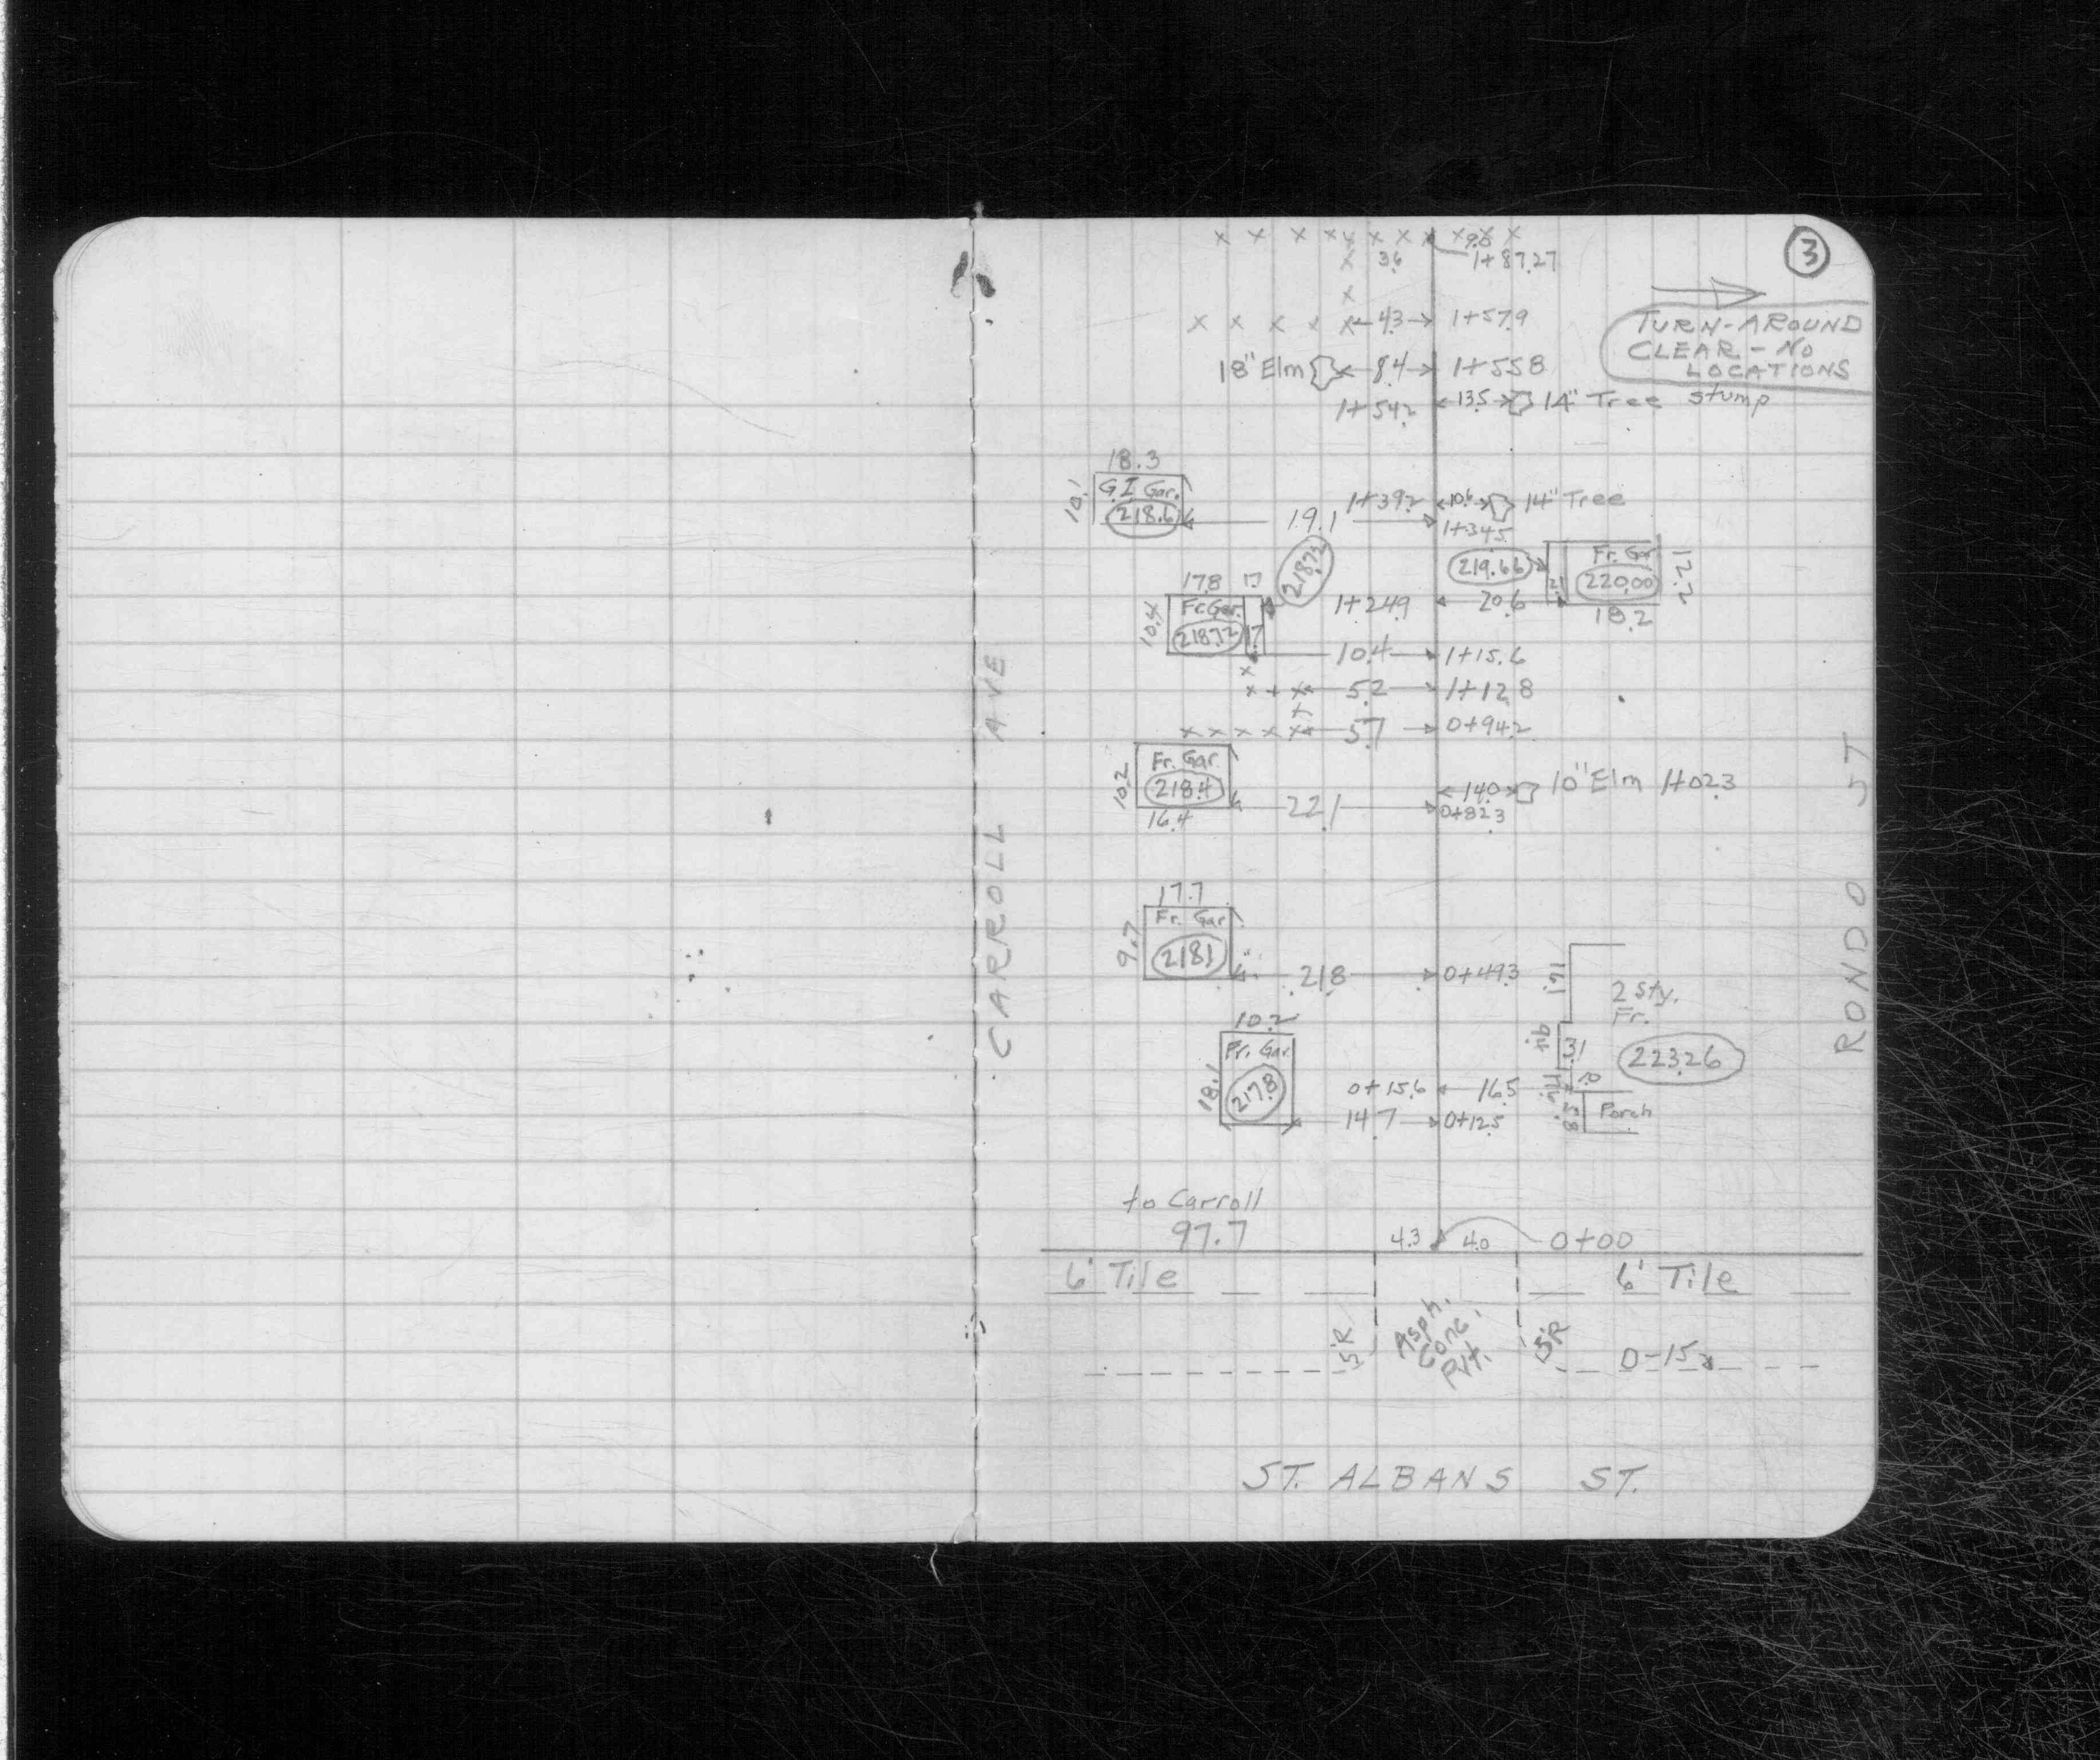 3
9.8
3.6 1+87.27
4.3 1+57.9
TURN-AROUND
CLEAR - NO
LOCATIONS
18" Elm 8.4 1+55.8
1+54.2 13.5 14" Tree stump
18.3
10.1 G.I. Gar.
218.6
1+39.2 10.6 14" Tree
19.1 1+34.5
218.72
219.66 Fr. Gar 12.2
2.1 220.00
17.8 1.7
10.4 Fr. Gar.
218.72 1.7
1+24.9 20.6
18.2
10.4 1+15.6
5.2 1+12.8
5.7 0+94.2
10.2 Fr. Gar.
218.4
16.4
14.0 10" Elm 1+02.3
22.1 0+82.3
17.7
9.7 Fr. Gar
218.1
21.8 0+49.3
16.1
2 Sty.
Fr.
223.26
10.2
18.1 Fr. Gar.
217.8
0+15.6 16.5
14.7 0+12.5
Porch
to Carroll
97.7
4.3 4.0 0+00
6' Tile 6' Tile
5'R Asph. Conc. Pvt. 5'R 0-15
CARROLL AVE
RONDO ST
ST. ALBANS ST.